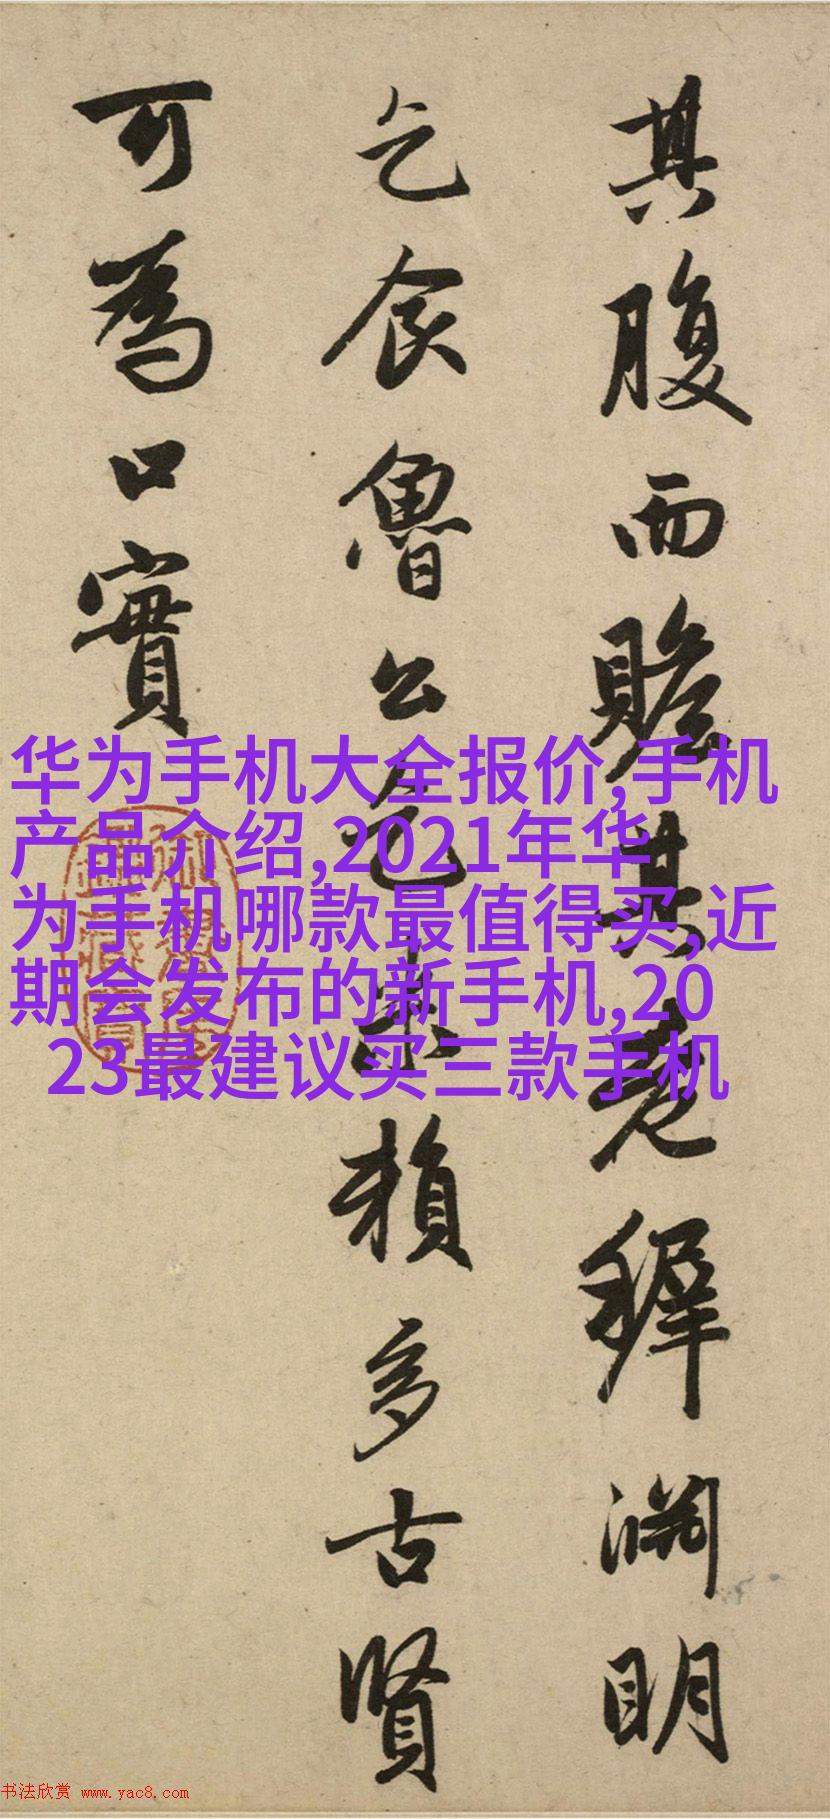 其腹而贍其老穉淵明
乞食魯公乞米賴多古賢
可為口實
华为手机大全报价,手机
产品介绍,2021年华
为手机哪款最值得买,近
期会发布的新手机,20
23最建议买三款手机
书法欣赏 www.yac8.com